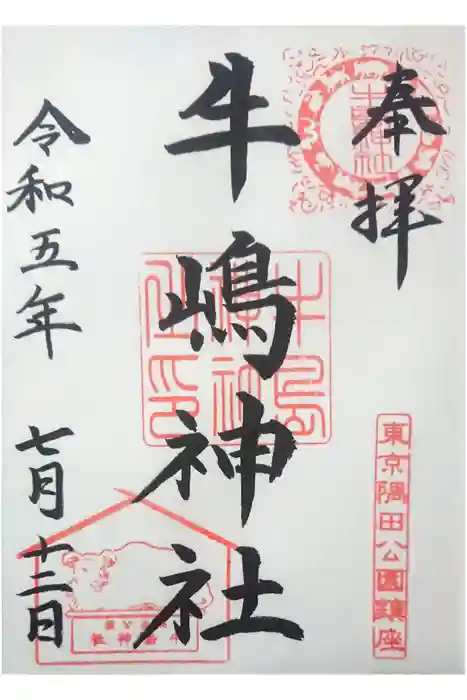 奉拝
牛嶋神社
東京隅田公園鎮座
令和五年
七月十二日